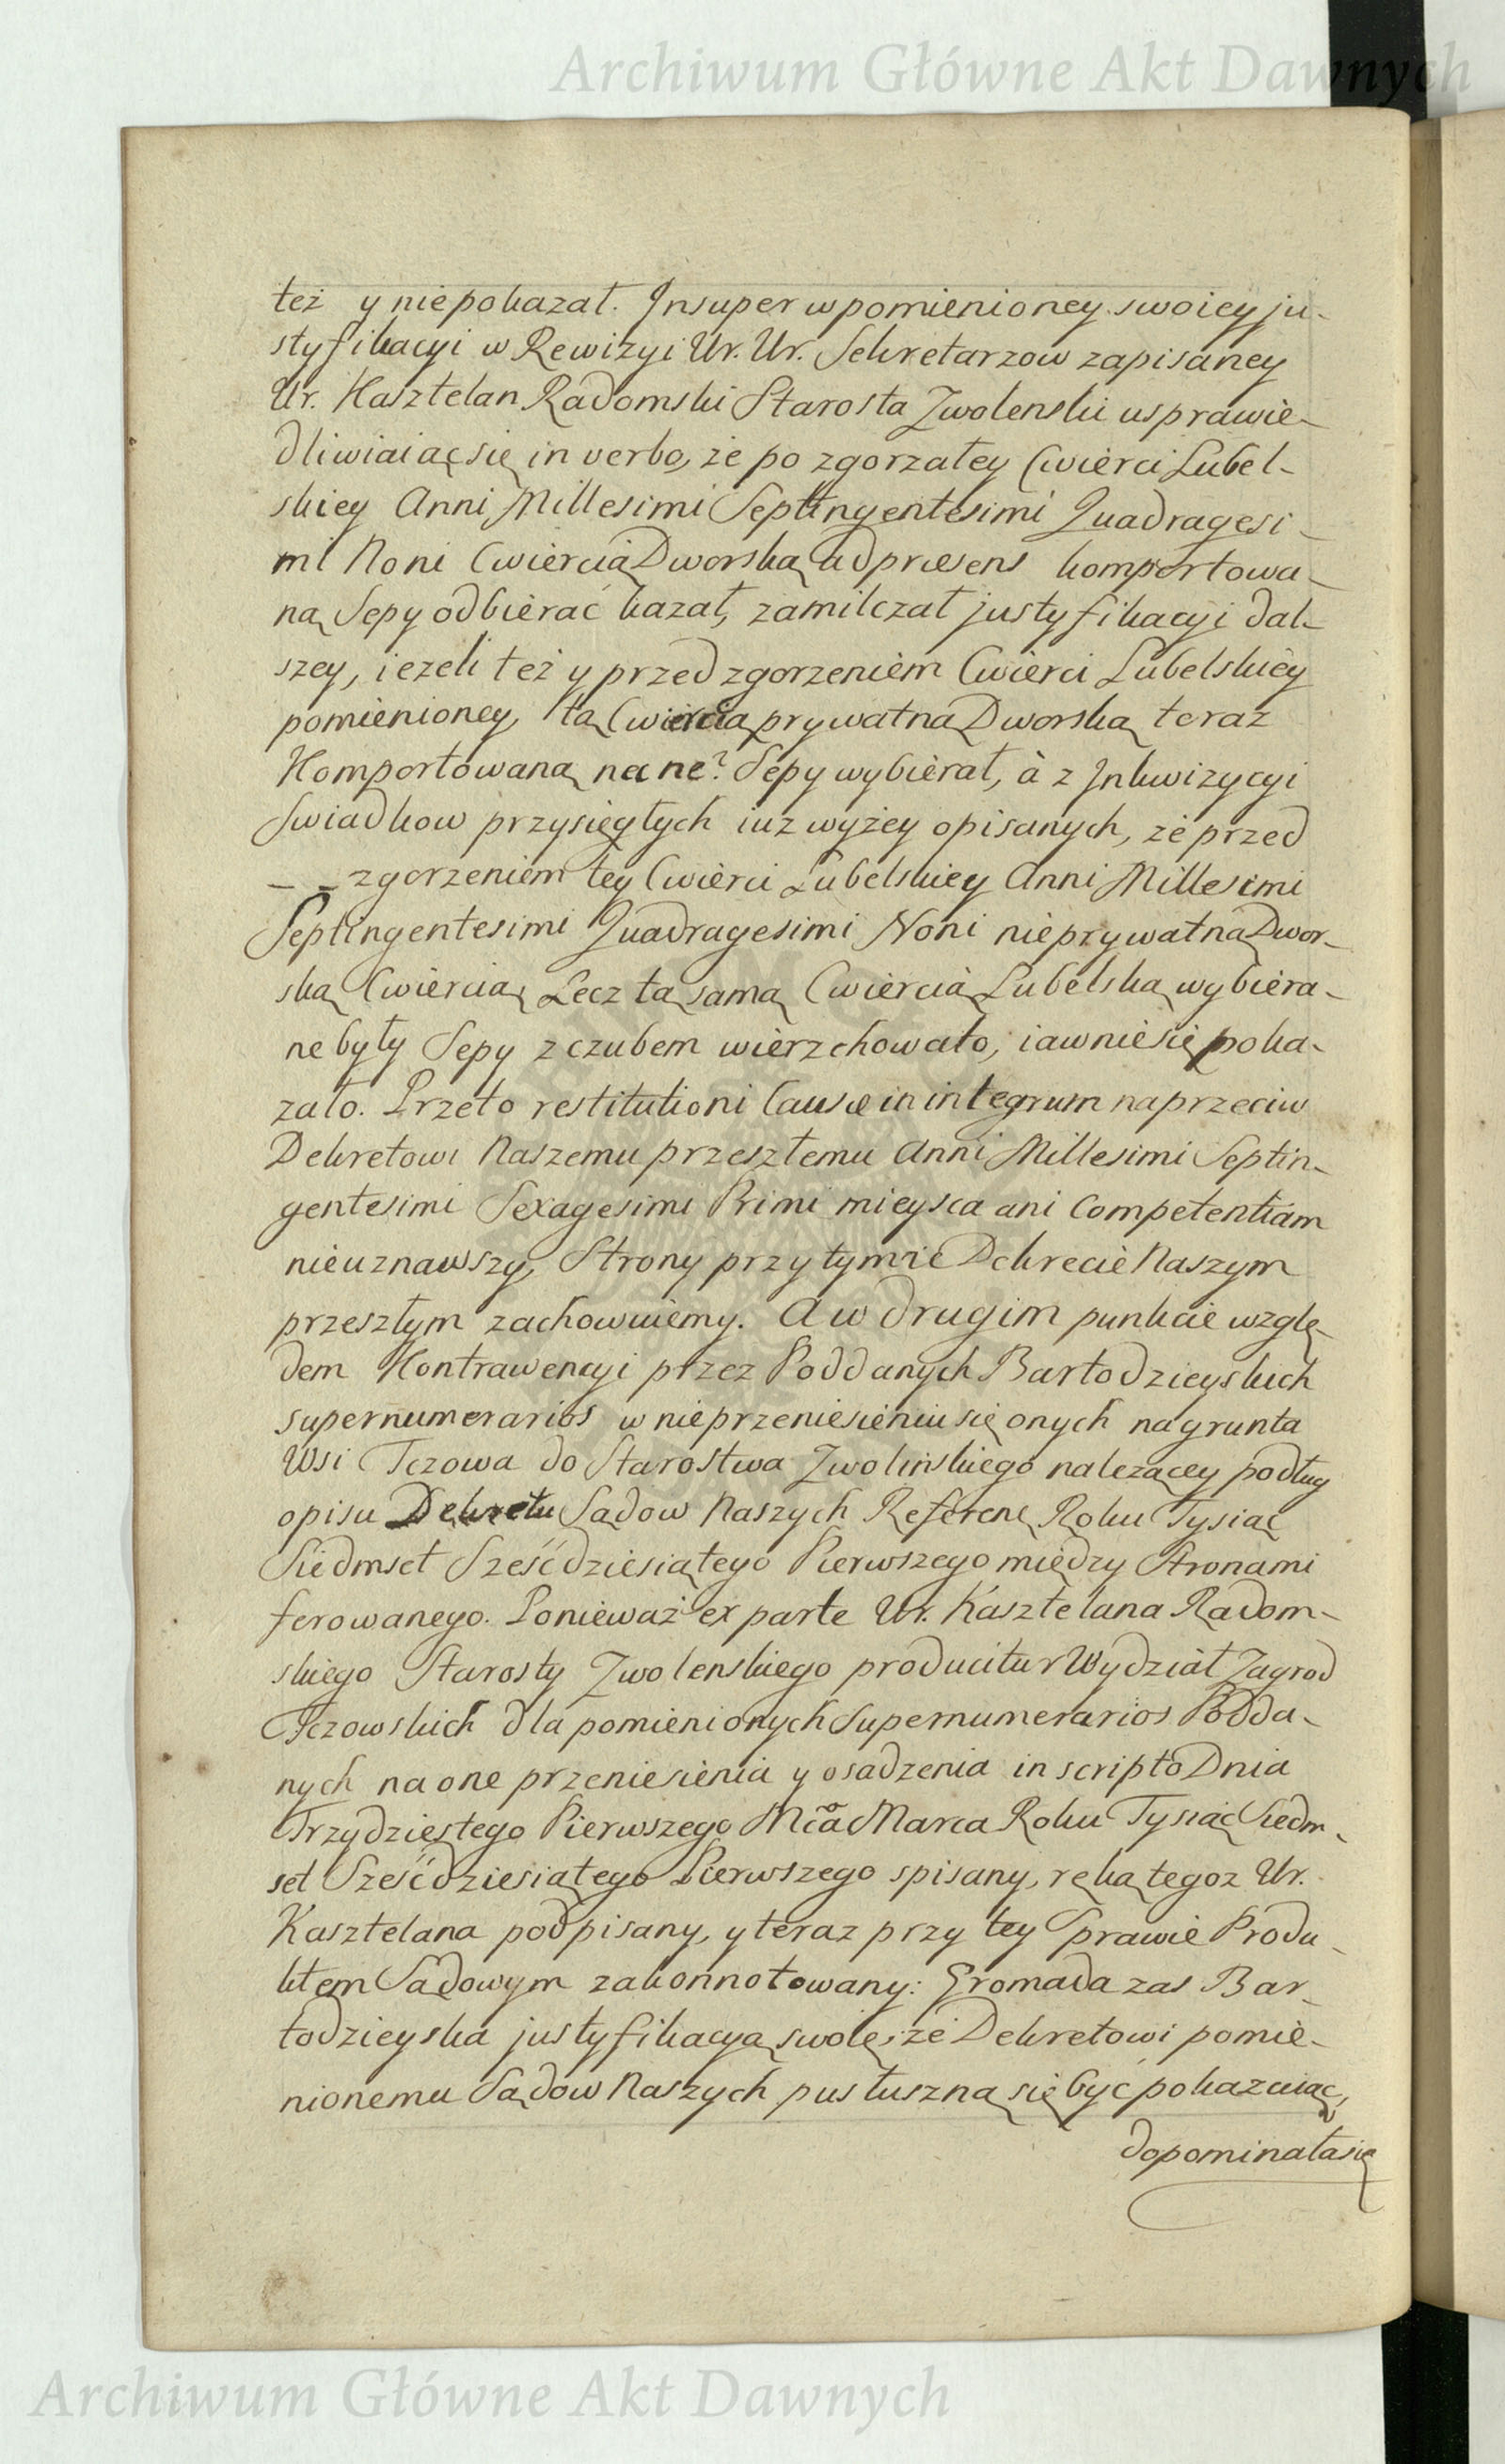 Archiwum Główne Akt Dawnych
też y niepokazał. Insuper wpomienioney swoiey ju-
styfikacyi w Rewizyi Ur. Ur. Sekretarzow zapisaney
Ur. Kasztelan Radomski Starosta Zwolenski usprawie-
dliwiaiąc się in verbo, że po zgorzałey Cwierci Lubel-
skiey Anni Millesimi Septingentesimi Quadragesi-
mi Noni Cwiercią Dworską ad præsens komportowa-
ną Sepy odbierać kazał, zamilczał justyfikacyi dal-
szey, ieżeli też y przed zgorzeniem Cwierci Lubelskiey
pomienioney, tą Cwiercią prywatną Dworską teraz
Komportowaną nec ne? Sepy wybierał, à z Inkwizycyi
Swiadkow przysięgłych iuż wyżey opisanych, że przed
_ _ zgorzeniem tey Cwierci Lubelskiey Anni Millesimi
Septingentesimi Quadragesimi Noni nieprywatną Dwor-
ską Cwiercią, Lecz tą samą Cwiercią Lubelską wybiera-
ne były Sepy z czubem wierzchowato, iawnie się poka-
zało. Przeto restitutioni Causæ in integrum naprzeciw
Dekretowi Naszemu przeszłemu Anni Millesimi Septin-
gentesimi Sexagesimi Primi mieysca ani Competentiam
nieuznawszy, Strony przy tymże Dekrecie Naszym
przeszłym zachowuiemy. A w drugim punkcie wzglę-
dem Kontrawencyi przez Poddanych Bartodzieyskich
supernumerarios w nieprzeniesieniu się onych na grunta
Wsi Tczowa do Starostwa Zwolińskiego należącey podług
opisu Dekretu Sądow Naszych Referen. Roku Tysiąc
Siedmset Sześćdziesiątego Pierwszego między Stronami
ferowanego. Ponieważ ex parte Ur. Kasztelana Radom-
skiego Starosty Zwolenskiego producitur Wydział Zagrod
Tczowskich dla pomienionych Supernumerarios Podda-
nych na one przeniesienia y osadzenia in scripto Dnia
Trzydziestego Pierwszego Mca Marca Roku Tysiąc Siedm-
set Sześćdziesiątego Pierwszego spisany, ręką tegoż Ur.
Kasztelana podpisany, y teraz przy tey Sprawie Produ-
ktem Sądowym zakonnotowany: Gromada zas Bar-
todzieyska justyfikacyą swoię, że Dekretowi pomie-
nionemu Sądow Naszych pusłuszną się być pokazuiąc,
dopominała się
Archiwum Główne Akt Dawnych